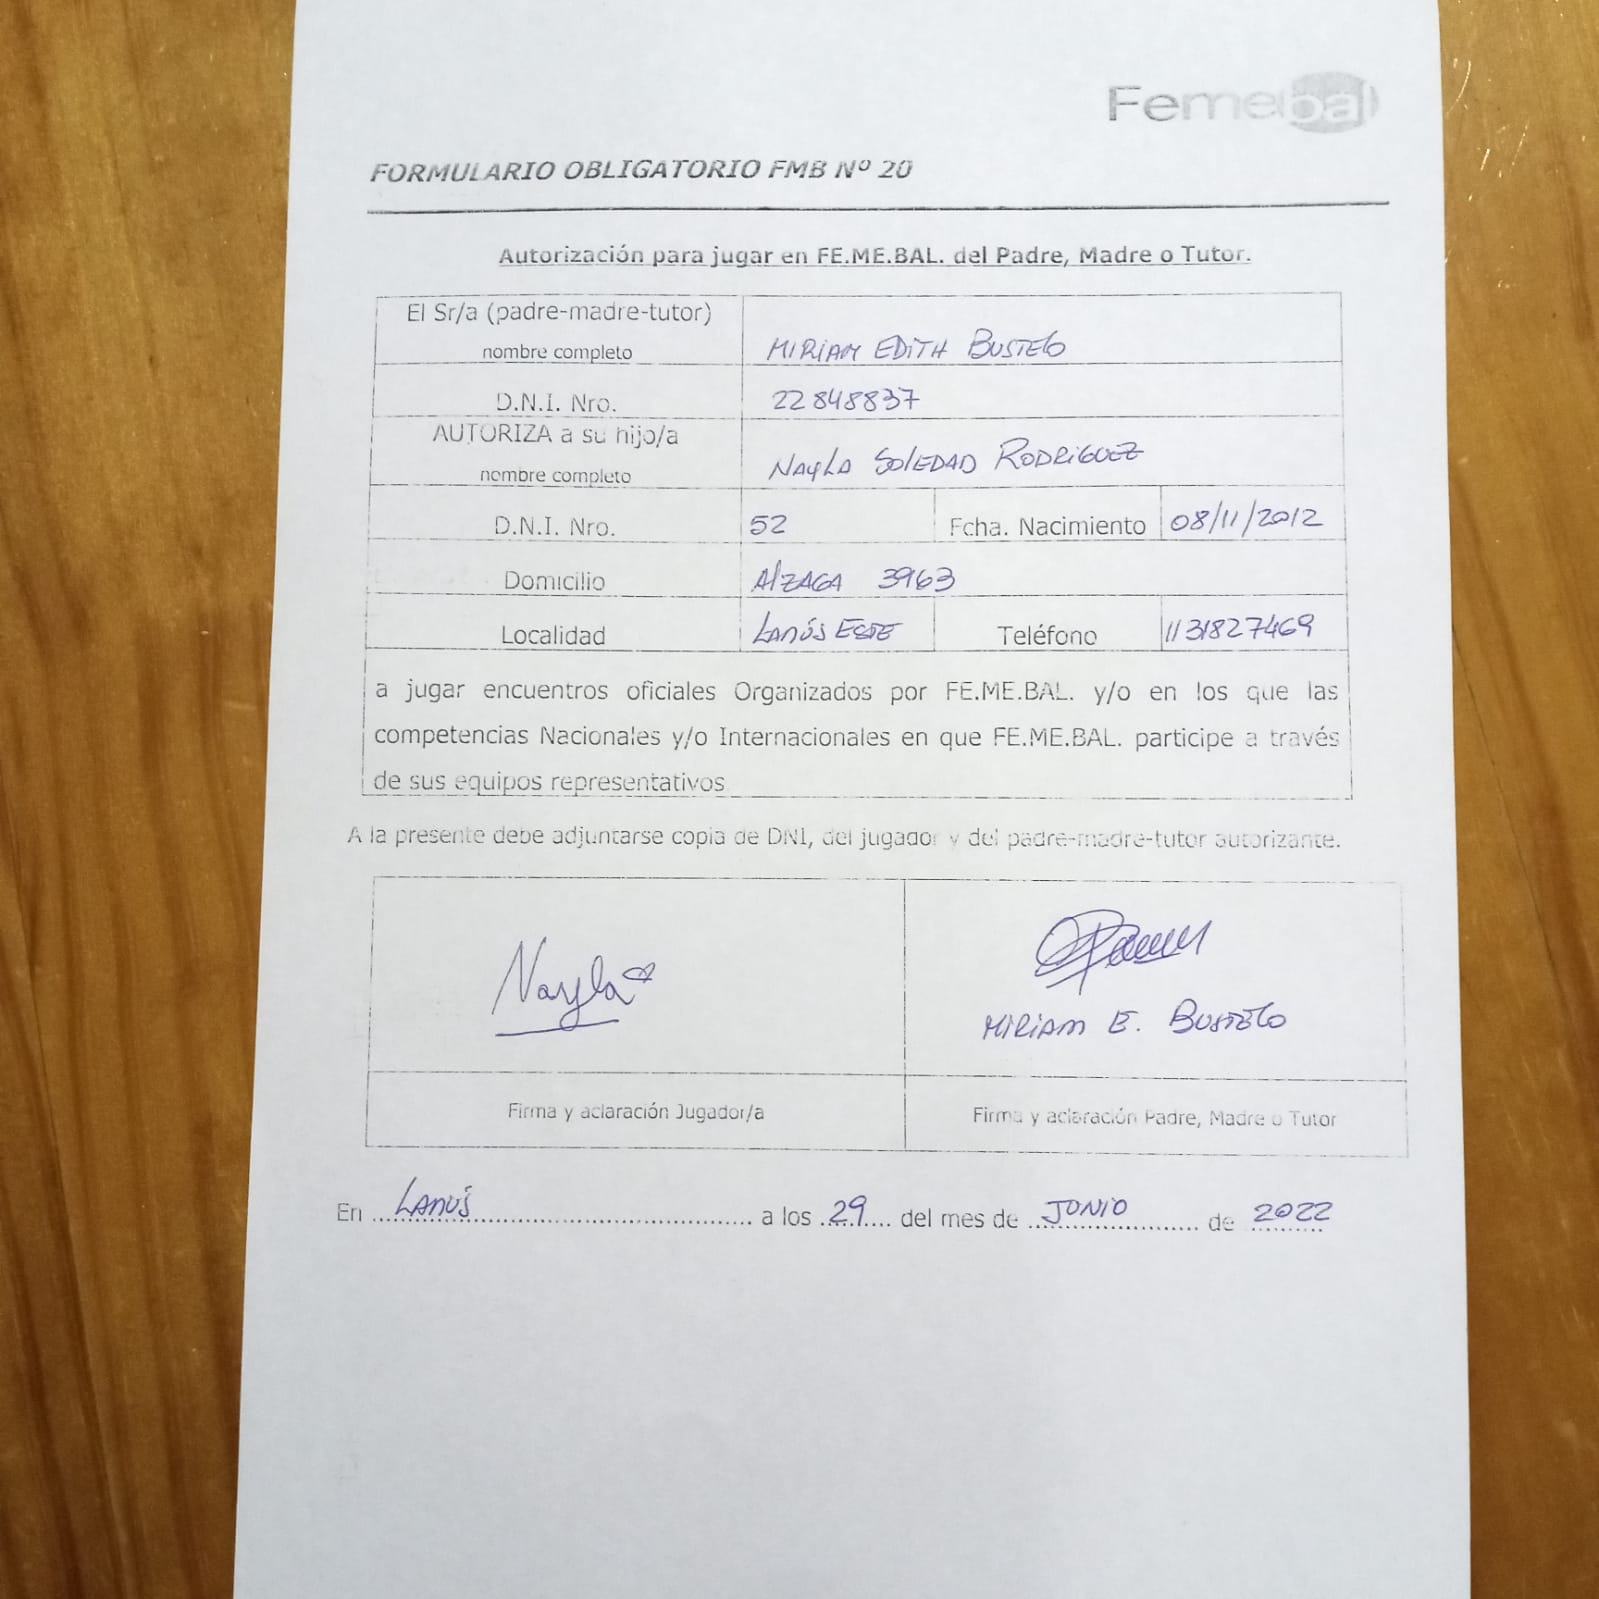 Femebal
FORMULARIO OBLIGATORIO FMB Nº 20
Autorización para jugar en FE.ME.BAL. del Padre, Madre o Tutor.
El Sr/a (padre-madre-tutor)
nombre completo
MIRIAM EDITH BUSTELO
D.N.I. Nro.
22848837
AUTORIZA a su hijo/a
nombre completo
NAYLA SOLEDAD RODRIGUEZ
D.N.I. Nro.
52
Fcha. Nacimiento
08/11/2012
Domicilio
AlZAGA 3963
Localidad
LANÚS ESTE
Teléfono
1131827469
a jugar encuentros oficiales Organizados por FE.ME.BAL. y/o en los que las
competencias Nacionales y/o Internacionales en que FE.ME.BAL. participe a través
de sus equipos representativos
A la presente debe adjuntarse copia de DNI, del jugador y del padre-madre-tutor autorizante.
Nayla
MIRIAM E. BUSTELO
Firma y aclaración Jugador/a
Firma y aclaración Padre, Madre o Tutor
En LANÚS a los 29 del mes de JUNIO de 2022